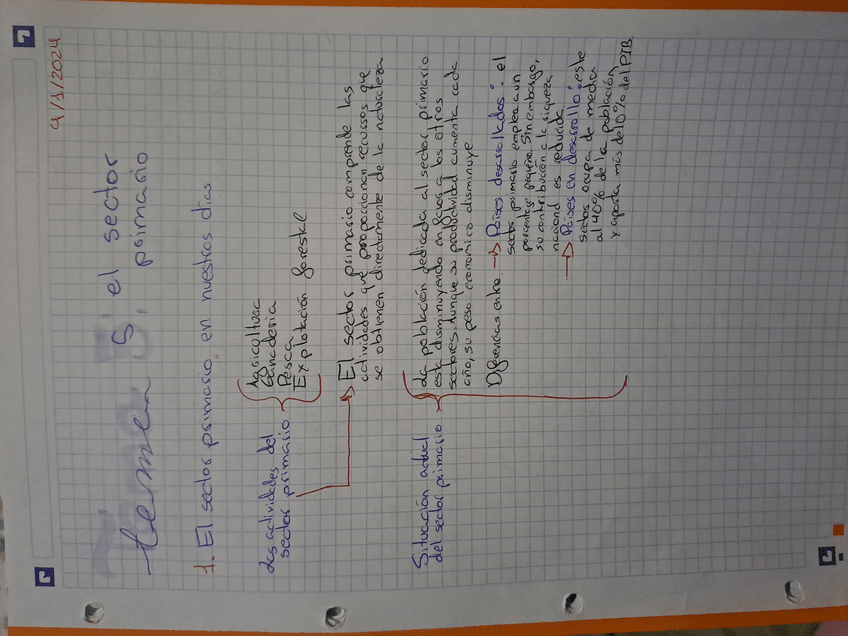 9/1/2024
tema 5, el sector
primario
1. El sector primario en nuestros días
Las actividades del
sector primario
Agricultura
Ganadería
Pesca
Explotación forestal
El sector primario comprende las
actividades que proporcionan recursos que
se obtienen directamente de la naturaleza
Situación actual
del sector primario
La población dedicada al sector primario
está disminuyendo en favor a los otros
sectores, aunque su productividad aumenta cada
año, su peso económico disminuye
Diferencias entre
Países desarrollados: el
sector primario emplea a un
porcentaje pequeño. Sin embargo,
su contribución a la riqueza
nacional es reducida
Países en desarrollo: este
sector ocupa de media
al 40% de la población
y aporta más del 10% del PIB.